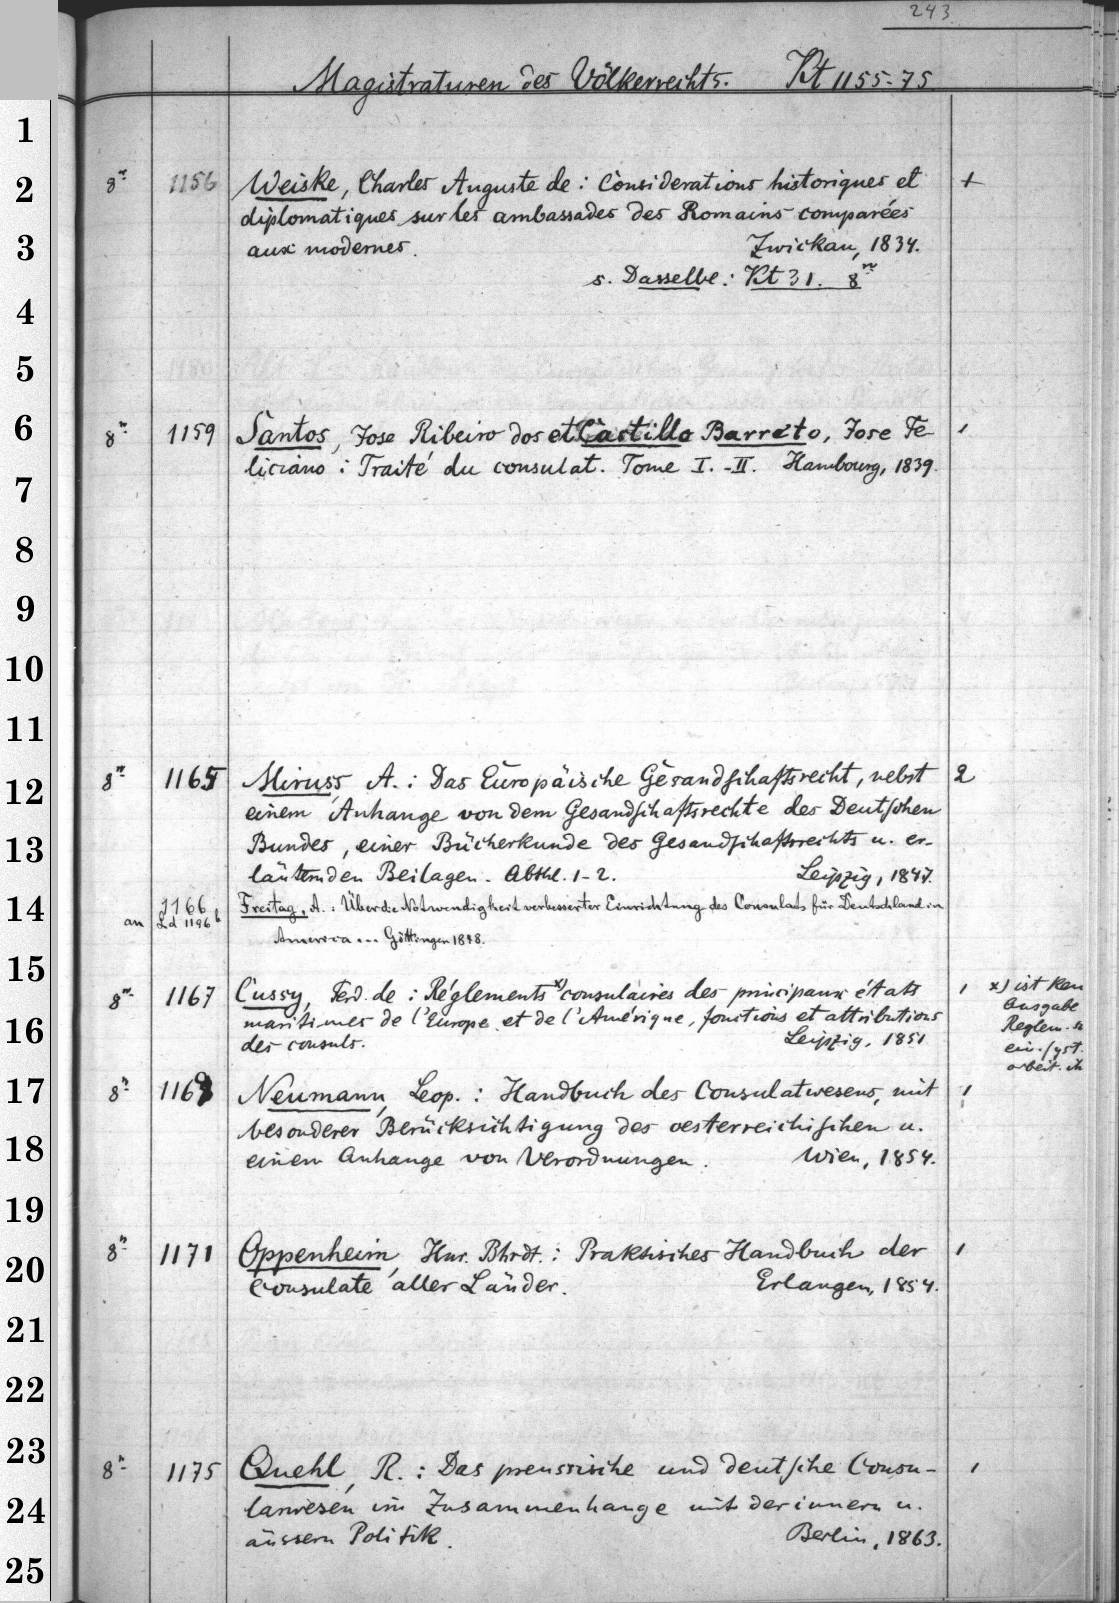 243
Magistraturen des Völkerrechts. Kt 1155-75
1
2
3
4
5
6
7
8
9
10
11
12
13
14
15
16
17
18
19
20
21
22
23
24
25
8° 1156 Weiske, Charles Auguste de: Considerations historiques et +
diplomatiques sur les ambassades des Romains comparées
aux modernes. Zwickau, 1834.
s. Dasselbe: Kt 31. 8°
8° 1159 Santos, Jose Ribeiro dos et Castillo Barreto, Jose Fe- 1
liciano: Traité du consulat. Tome I.-II. Hambourg, 1839.
8° 1165 Miruss, A.: Das Europäische Gesandschaftsrecht, nebst 2
einem Anhange von dem Gesandschaftsrechte des Deutschen
Bundes, einer Bücherkunde des Gesandschaftsrechts u. er-
läuternden Beilagen. Abthl. 1-2. Leipzig, 1847.
1166 Freitag, A.: Über die Notwendigkeit verbesserter Einrichtung des Consulats für Deutschland in
an Ld 1196 b America ... Göttingen 1848.
8° 1167 Cussy, Ferd. de: Réglements x) consulaires des principaux états 1 x) ist kan
maritimes de l'Europe et de l'Amérique, fonctions et attributions Ausgabe
des consuls. Leipzig, 1851 Reglem.
ein. syst.
arbeit.
8° 1169 Neumann, Leop.: Handbuch des Consulatwesens, mit 1
besonderer Berücksichtigung des oesterreichischen u.
einem Anhange von Verordnungen. Wien, 1854.
8° 1171 Oppenheim, Hnr. Bhrdt.: Praktisches Handbuch der 1
Consulate aller Länder. Erlangen, 1854.
8° 1175 Quehl, R.: Das preussische und deutsche Consu- 1
larwesen im Zusammenhange mit der innern u.
äussern Politik. Berlin, 1863.